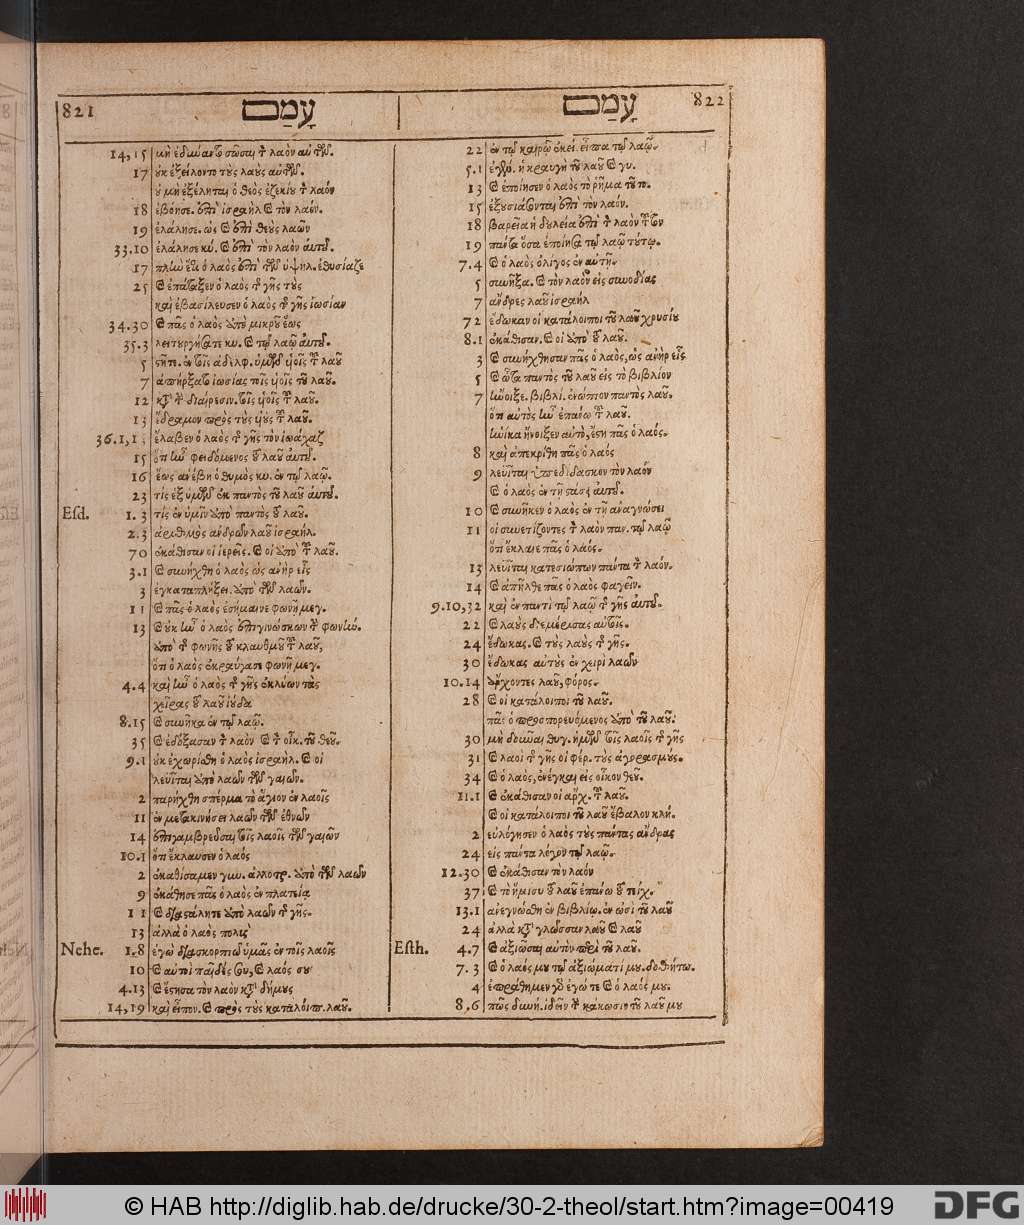 821 עָמַם
14,15 μὴ ἐδύναντο σῶσαι τ λαὸν αὐτῶν.
17 οὐκ ἐξείλοντο τοὺς λαοὺς αὐτῶν.
οὐ μὴ ἐξέληται ὁ θεὸς ἐζεκίου τ λαόν
18 ἐβόησε. ἐπὶ ἰσραὴλ καὶ τὸν λαόν.
19 ἐλάλησε. ὡς καὶ ἐπὶ θεοὺς λαῶν
33.10 ἐλάλησε κύ. καὶ ἐπὶ τὸν λαὸν αὐτοῦ.
17 πλὴν ἔτι ὁ λαὸς ἐπὶ τῶν ὑψηλ. ἐθυσίαζε
25 καὶ ἐπάταξεν ὁ λαὸς τ γῆς τοὺς
καὶ ἐβασίλευσεν ὁ λαὸς τ γῆς ἰωσίαν
34.30 καὶ πᾶς ὁ λαὸς ἀπὸ μικροῦ ἕως
35.3 λειτουργήσατε κω. καὶ τῷ λαῷ αὐτοῦ.
5 στῆτε. ἐν τοῖς ἀδελφ. ὑμῶν υἱοῖς τ λαοῦ
7 ἀπήρξατο ἰωσίας τοῖς υἱοῖς τοῦ λαοῦ.
12 κτ τ διαίρεσιν. τοῖς υἱοῖς τ λαοῦ.
13 ἔδραμον πρὸς τοὺς υἱοὺς τ λαοῦ.
36.1,1 ἔλαβεν ὁ λαὸς τ γῆς τὸν ἰωάχαζ
15 ὅτι ἦν φειδόμενος τοῦ λαοῦ αὐτοῦ.
16 ἕως ἀνέβη ὁ θυμὸς κυ. ἐν τῷ λαῷ.
23 τίς ἐξ ὑμῶν ἐκ παντὸς τοῦ λαοῦ αὐτοῦ.
Esd. 1.3 τίς ἐν ὑμῖν ἀπὸ παντὸς τοῦ λαοῦ.
2.3 ἀριθμὸς ἀνδρῶν λαοῦ ἰσραήλ.
70 ἐκάθισαν οἱ ἱερεῖς. καὶ οἱ ἀπὸ τ λαοῦ.
3.1 καὶ συνήχθη ὁ λαὸς ὡς ἀνὴρ εἷς
3 ἐγκαταπλήξει. ἀπὸ τῶν λαῶν.
11 καὶ πᾶς ὁ λαὸς ἐσήμαινε φωνῇ μεγ.
13 καὶ οὐκ ἦν ὁ λαὸς ἐπιγινώσκων τ φωνήν.
ἀπὸ τ φωνῆς τοῦ κλαυθμοῦ τ λαοῦ,
ὅτι ὁ λαὸς ἐκραύγασε φωνῇ μεγ.
4.4 καὶ ἦν ὁ λαὸς τ γῆς ἐκλύων τὰς
χεῖρας τοῦ λαοῦ ἰούδα
8.15 καὶ συνῆκα ἐν τῷ λαῷ.
35 καὶ ἐδόξασαν τ λαὸν καὶ τ οἶκ. τοῦ θεοῦ.
9.1 οὐκ ἐχωρίσθη ὁ λαὸς ἰσραὴλ. καὶ οἱ
λευῖται ἀπὸ λαῶν τῶν γαιῶν.
2 παρήχθη σπέρμα τὸ ἅγιον ἐν λαοῖς
11 ἐν μετακινήσει λαῶν τῶν ἐθνῶν
14 ἐπιγαμβρεῦσαι τοῖς λαοῖς τῶν γαιῶν
10.1 ὅτι ἔκλαυσεν ὁ λαός
2 ἐκαθίσαμεν γυν. ἀλλοτρ. ἀπὸ τῶν λαῶν
9 ἐκάθησε πᾶς ὁ λαὸς ἐν πλατείᾳ
11 καὶ διαστάλητε ἀπὸ λαῶν τ γῆς.
13 ἀλλὰ ὁ λαὸς πολύς
Nehe. 1.8 ἐγὼ διασκορπιῶ ὑμᾶς ἐν τοῖς λαοῖς
10 καὶ αὐτοὶ παῖδές σου, καὶ λαός σου
4.13 καὶ ἔστησα τὸν λαὸν κτ δήμους
14,19 καὶ εἶπον. καὶ πρὸς τοὺς καταλοίπ. λαοῦ.
עָמַם 822
22 ἐν τῷ καιρῷ ἐκεί. εἶπα τῷ λαῷ.
5.1 ἐγένο. ἡ κραυγὴ τοῦ λαοῦ καὶ γυ.
13 καὶ ἐποίησεν ὁ λαὸς τὸ ῥῆμα τοῦτο.
15 ἐξουσιάζονται ἐπὶ τὸν λαόν.
18 βαρεῖα ἡ δουλεία ἐπὶ τ λαὸν τοῦτον
19 πάντα ὅσα ἐποίησα τῷ λαῷ τούτῳ.
7.4 καὶ ὁ λαὸς ὀλίγος ἐν αὐτῇ.
5 συνῆξα. καὶ τὸν λαὸν εἰς συνοδίας
7 ἄνδρες λαοῦ ἰσραήλ
72 ἔδωκαν οἱ κατάλοιποι τοῦ λαοῦ χρυσίου
8.1 ἐκάθισαν. καὶ οἱ ἀπὸ τοῦ λαοῦ.
3 καὶ συνήχθησαν πᾶς ὁ λαὸς, ὡς ἀνὴρ εἷς
5 καὶ ὦτα παντὸς τοῦ λαοῦ εἰς τὸ βιβλίον
7 ἤνοιξε. βιβλί. ἐνώπιον παντὸς λαοῦ.
ὅτι αὐτὸς ἦν ἐπάνω τ λαοῦ.
ἡνίκα ἤνοιξεν αὐτὸ, ἔστη πᾶς ὁ λαός.
8 καὶ ἀπεκρίθη πᾶς ὁ λαός
9 λευῖται ὑπεδίδασκον τὸν λαόν
καὶ ὁ λαὸς ἐν τῇ στάσει αὐτοῦ.
10 καὶ συνῆκεν ὁ λαὸς ἐν τῇ ἀναγνώσει
11 οἱ συνετίζοντες τ λαὸν παν. τῷ λαῷ
ὅτι ἔκλαιε πᾶς ὁ λαός.
13 λευῖται κατεσιώπων πάντα τ λαόν.
14 καὶ ἀπῆλθε πᾶς ὁ λαὸς φαγεῖν.
9.10,32 καὶ ἐν παντὶ τῷ λαῷ τ γῆς αὐτοῦ.
22 καὶ λαοὺς διεμέρισας αὐτοῖς.
24 ἔδωκας. καὶ τοὺς λαοὺς τ γῆς.
30 ἔδωκας αὐτοὺς ἐν χειρὶ λαῶν
10.14 ἄρχοντες λαοῦ, φόρος.
28 καὶ οἱ κατάλοιποι τοῦ λαοῦ.
πᾶς ὁ προσπορευόμενος ἀπὸ τοῦ λαοῦ.
30 μὴ δοῦναι θυγ. ἡμῶν τοῖς λαοῖς τ γῆς
31 καὶ λαοὶ τ γῆς οἱ φέρ. τοὺς ἀγορασμούς.
34 καὶ ὁ λαὸς, ἐνέγκαι εἰς οἶκον θεοῦ.
11.1 καὶ ἐκάθισαν οἱ ἄρχ. τ λαοῦ.
καὶ οἱ κατάλοιποι τοῦ λαοῦ ἔβαλον κλή.
2 εὐλόγησεν ὁ λαὸς τοὺς πάντας ἄνδρας
24 εἰς πάντα λόγον τῷ λαῷ.
12.30 καὶ ἐκάθισαν τὸν λαόν
37 καὶ τὸ ἥμισυ τοῦ λαοῦ ἐπάνω τοῦ τείχ.
13.1 ἀνεγνώσθη ἐν βιβλίῳ. ἐν ὠσὶ τοῦ λαοῦ
24 ἀλλὰ κτ γλῶσσαν λαοῦ καὶ λαοῦ
Esth. 4.7 καὶ ἀξιῶσαι αὐτὸν περὶ τοῦ λαοῦ.
7.3 καὶ ὁ λαός μου τῷ ἀξιώματί μου. δοθήτω.
4 ἐπράθημεν γὰρ ἐγώ τε καὶ ὁ λαός μου.
8.6 πῶς δυνή. ἰδεῖν τ κάκωσιν τοῦ λαοῦ μου
© HAB http://diglib.hab.de/drucke/30-2-theol/start.htm?image=00419
DFG